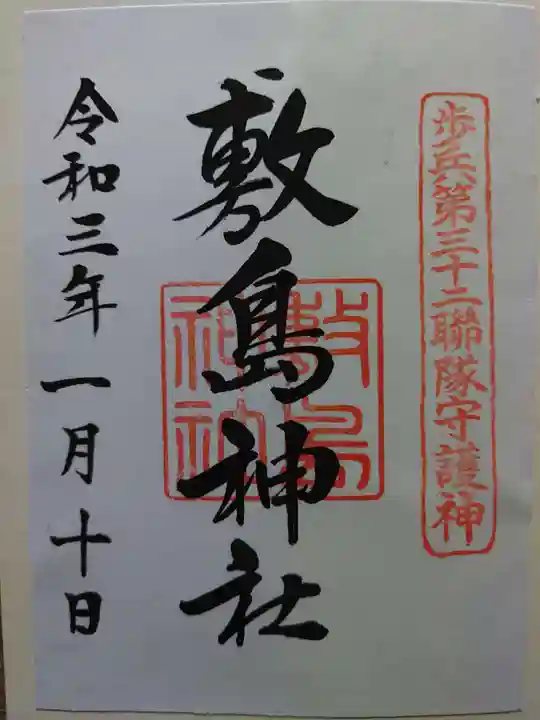 歩兵第三十二聯隊守護神
敷島神社
敷島
神社
令和三年一月十日